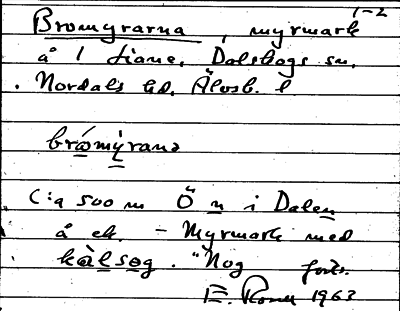 1-2
Bromyrarna, myrmark
å 1 Liane, Dalskogs sn,
Nordals hd, Älvsb. l
bròmỳrana
C:a 500 m Ö n i Dalen
å ek. - Myrmark med
kàlsog. "Nog forts.
1963